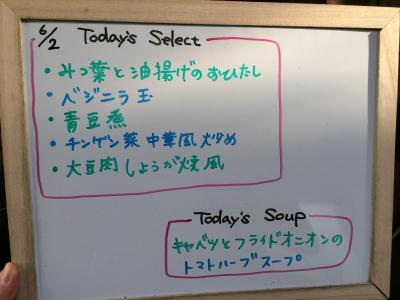 6/2 Today's Select
・みつ葉と油揚げのおひたし
・ベジニラ玉
・青豆煮
・チンゲン菜中華風炒め
・大豆肉しょうが焼風
Today's Soup
キャベツとフライドオニオンの
トマトハーブスープ